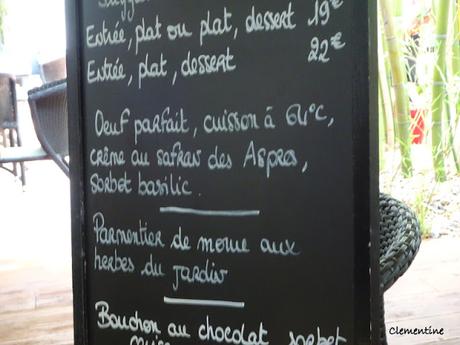 Entrée, plat ou plat, dessert 19€
Entrée, plat, dessert 22€
Oeuf parfait, cuisson à 64°C,
crème au safran des Aspres,
sorbet basilic.
Parmentier de morue aux
herbes du jardin
Bouchon au chocolat sorbet
Clementine